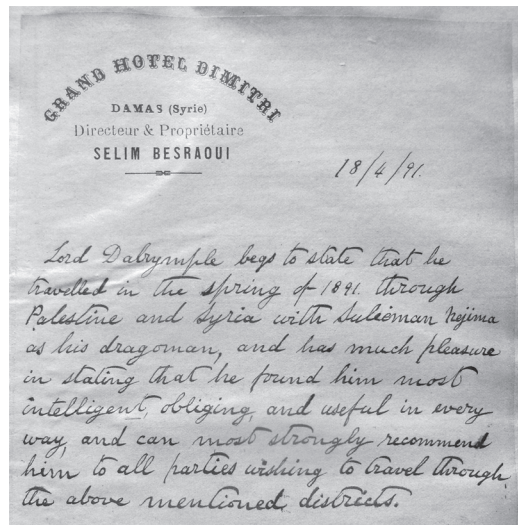 GRAND HOTEL DIMITRI
DAMAS (Syrie)
Directeur & Propriétaire
SELIM BESRAOUI
18/4/91.
Lord Dalrymple begs to state that he
travelled in the spring of 1891. through
Palestine and Syria with Suleiman Nejima
as his dragoman, and has much pleasure
in stating that he found him most
intelligent, obliging, and useful in every
way, and can most strongly recommend
him to all parties wishing to travel through
the above mentioned districts.